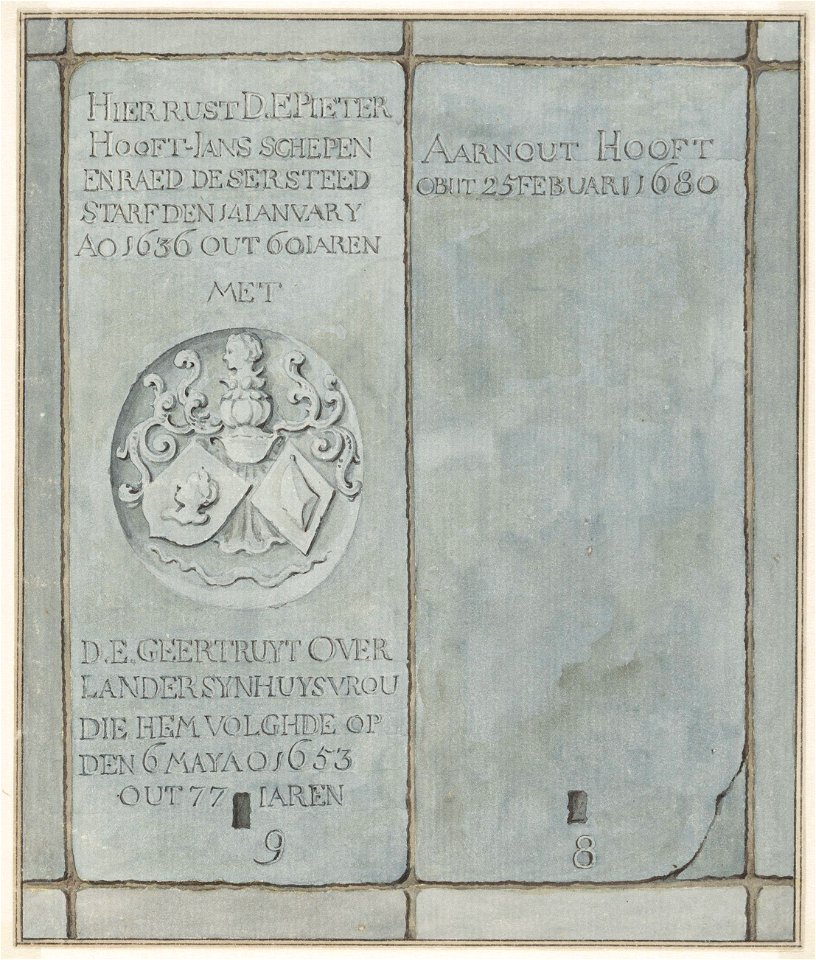 HIER RUST D.E PIETER
HOOFT-JANS SCHEPEN
EN RAED DESER STEED
STARF DEN 14 IANVARY
AO 1636 OUT 60 IAREN
MET
D.E. GEERTRUYT OVER
LANDER SYN HUYSVROU
DIE HEM VOLGHDE OP
DEN 6 MAY AO 1653
OUT 77 IAREN
9
AARNOUT HOOFT
OBIIT 25 FEBUARII 1680
8